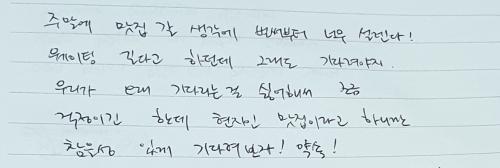 주말에 맛집 갈 생각에 벌써부터 너무 설렌다!
웨이팅 길다고 하던데 그래도 기다려야지.
우리가 원래 기다리는걸 싫어해서 조금
걱정이긴 한데 현지인 맛집이라고 하니까
참을성 있게 기다려보자! 약속!